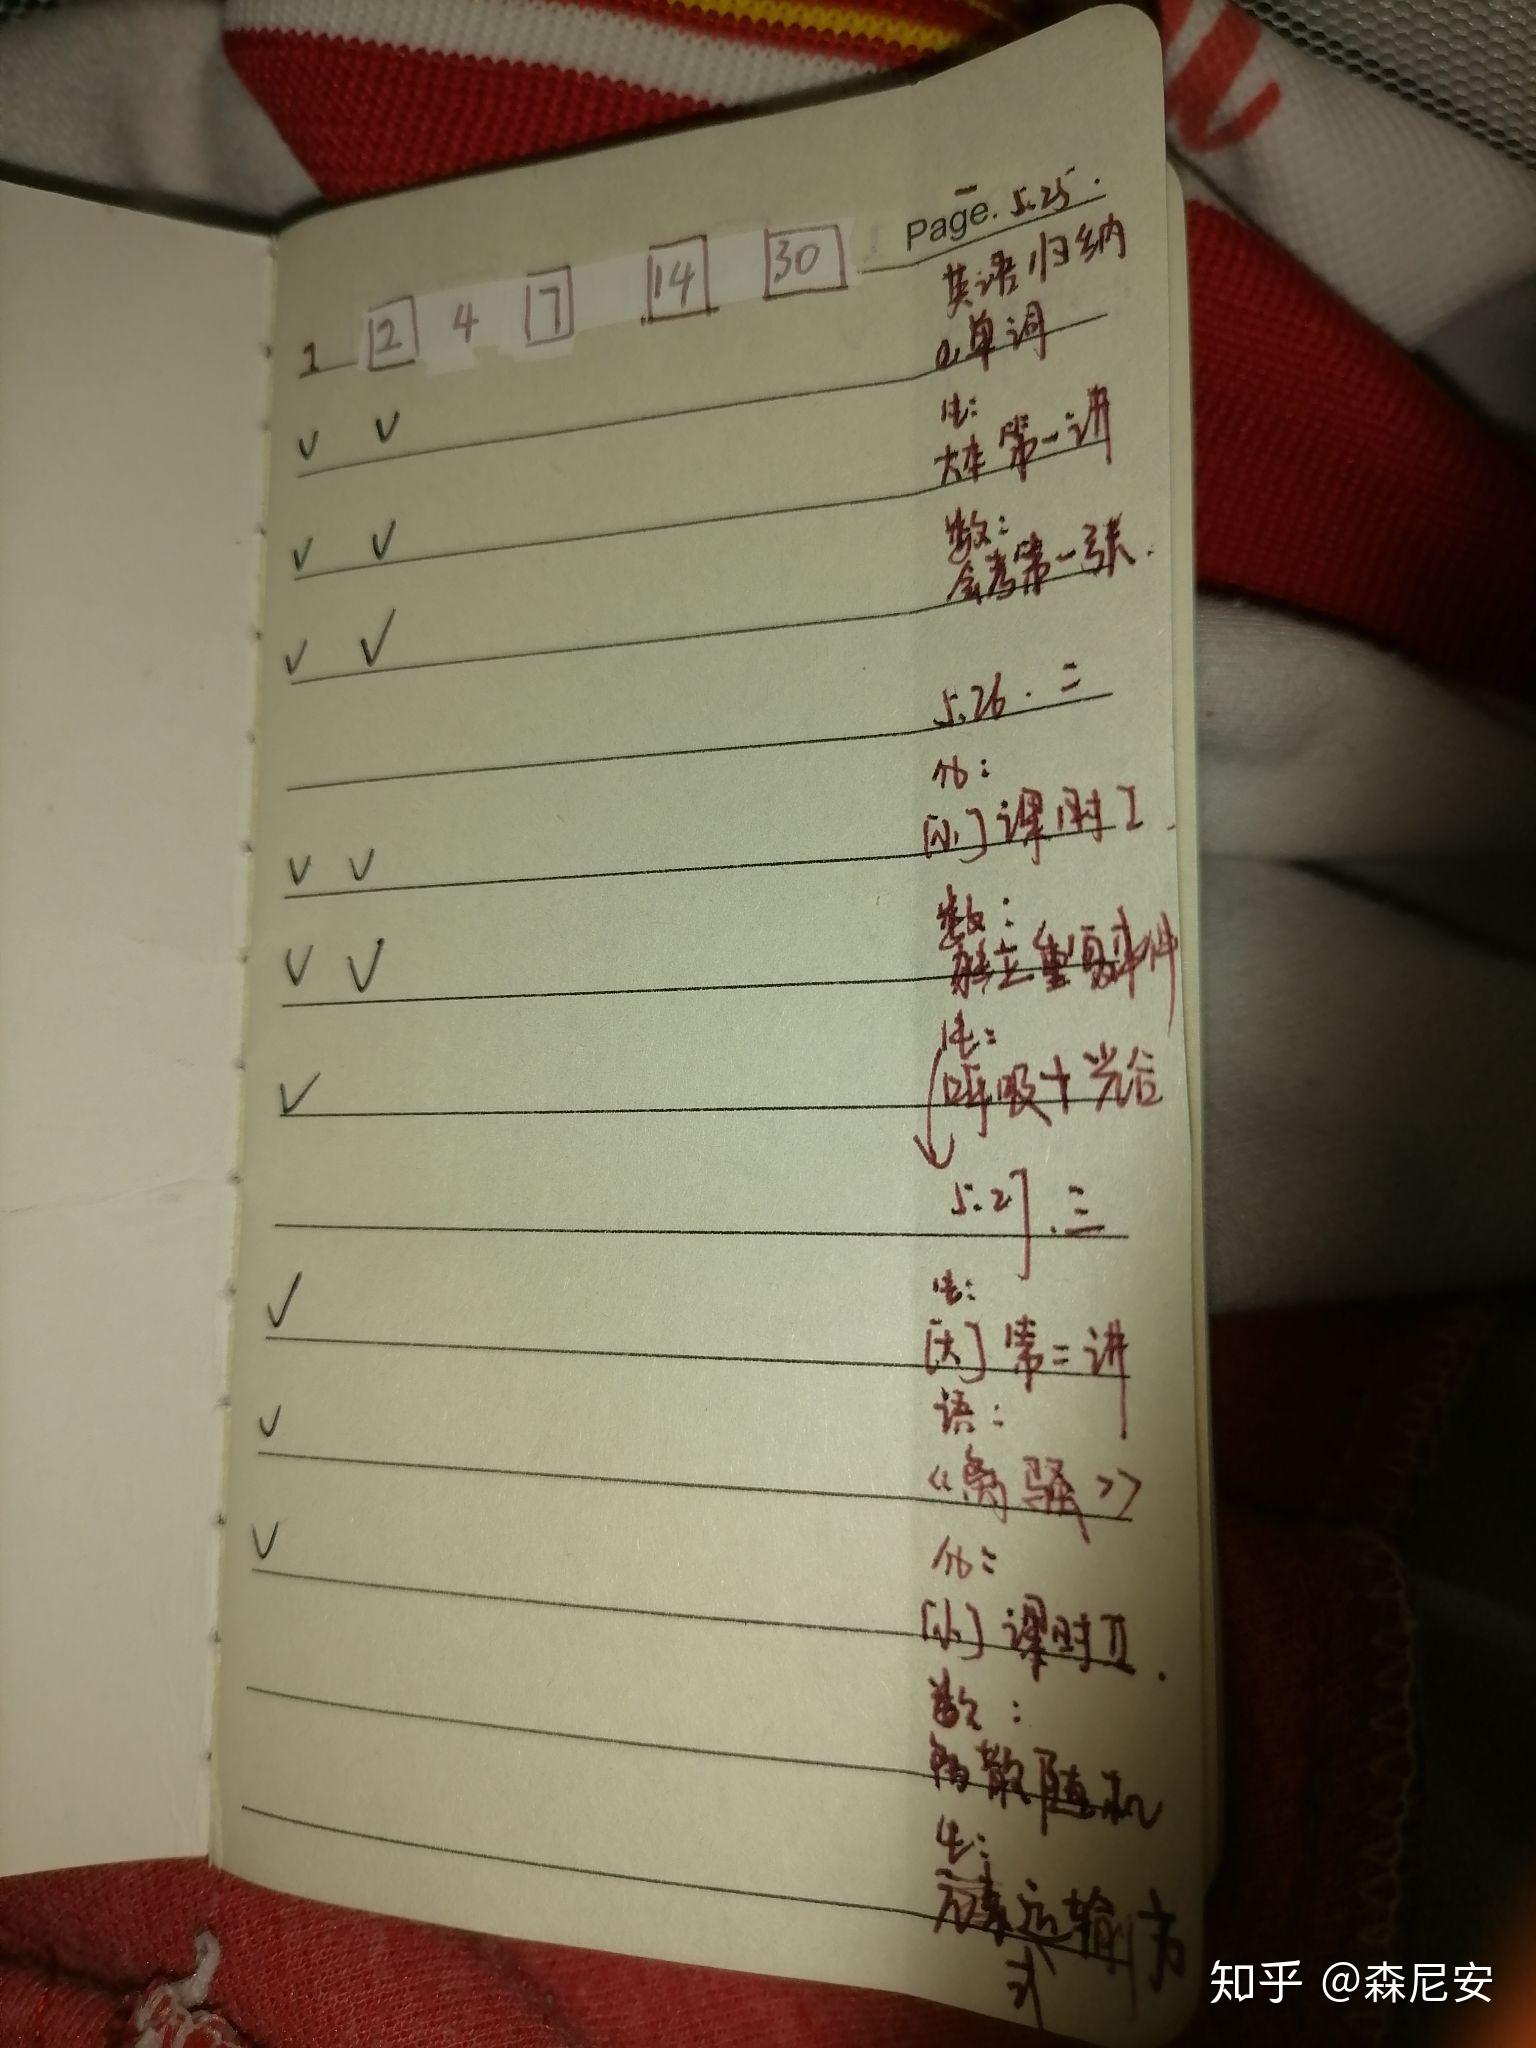 Page. 5.25.
一
1 2 4 7 14 30
英语归纳
a.单词
生:
大本第一讲
数:
会考第一张.
✓ ✓
✓ ✓
✓ ✓
5.26. 二
[小]课时I.
✓ ✓
数:
独立重复事件
✓ ✓
生:
呼吸+光合
✓
5.27.三
生:
[大]第二讲
✓
语:
《离骚》
✓
[小]课时II.
✓
数:
离散随机
生:
元素运输方
式
知乎 @森尼安